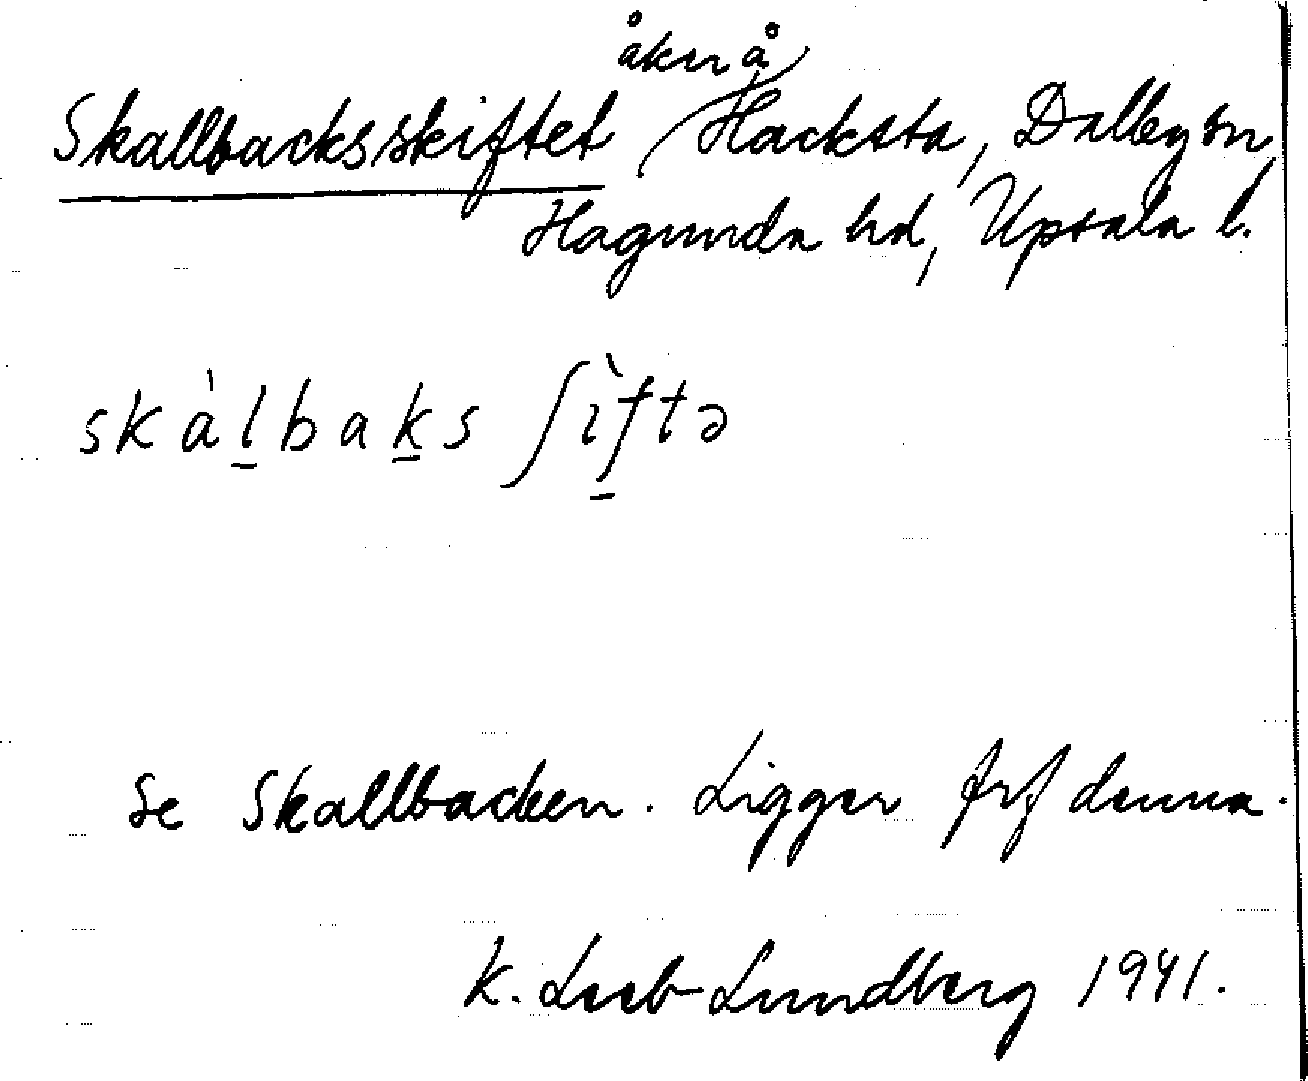 åker å
Skallbacksskiftet Hacksta, Dalby sn,
Hagunda hd, Upsala l.
skàḻbaḵs ʃìf̱tə
Se Skallbacken. Ligger frf denna.
K. Leeb-Lundberg 1941.